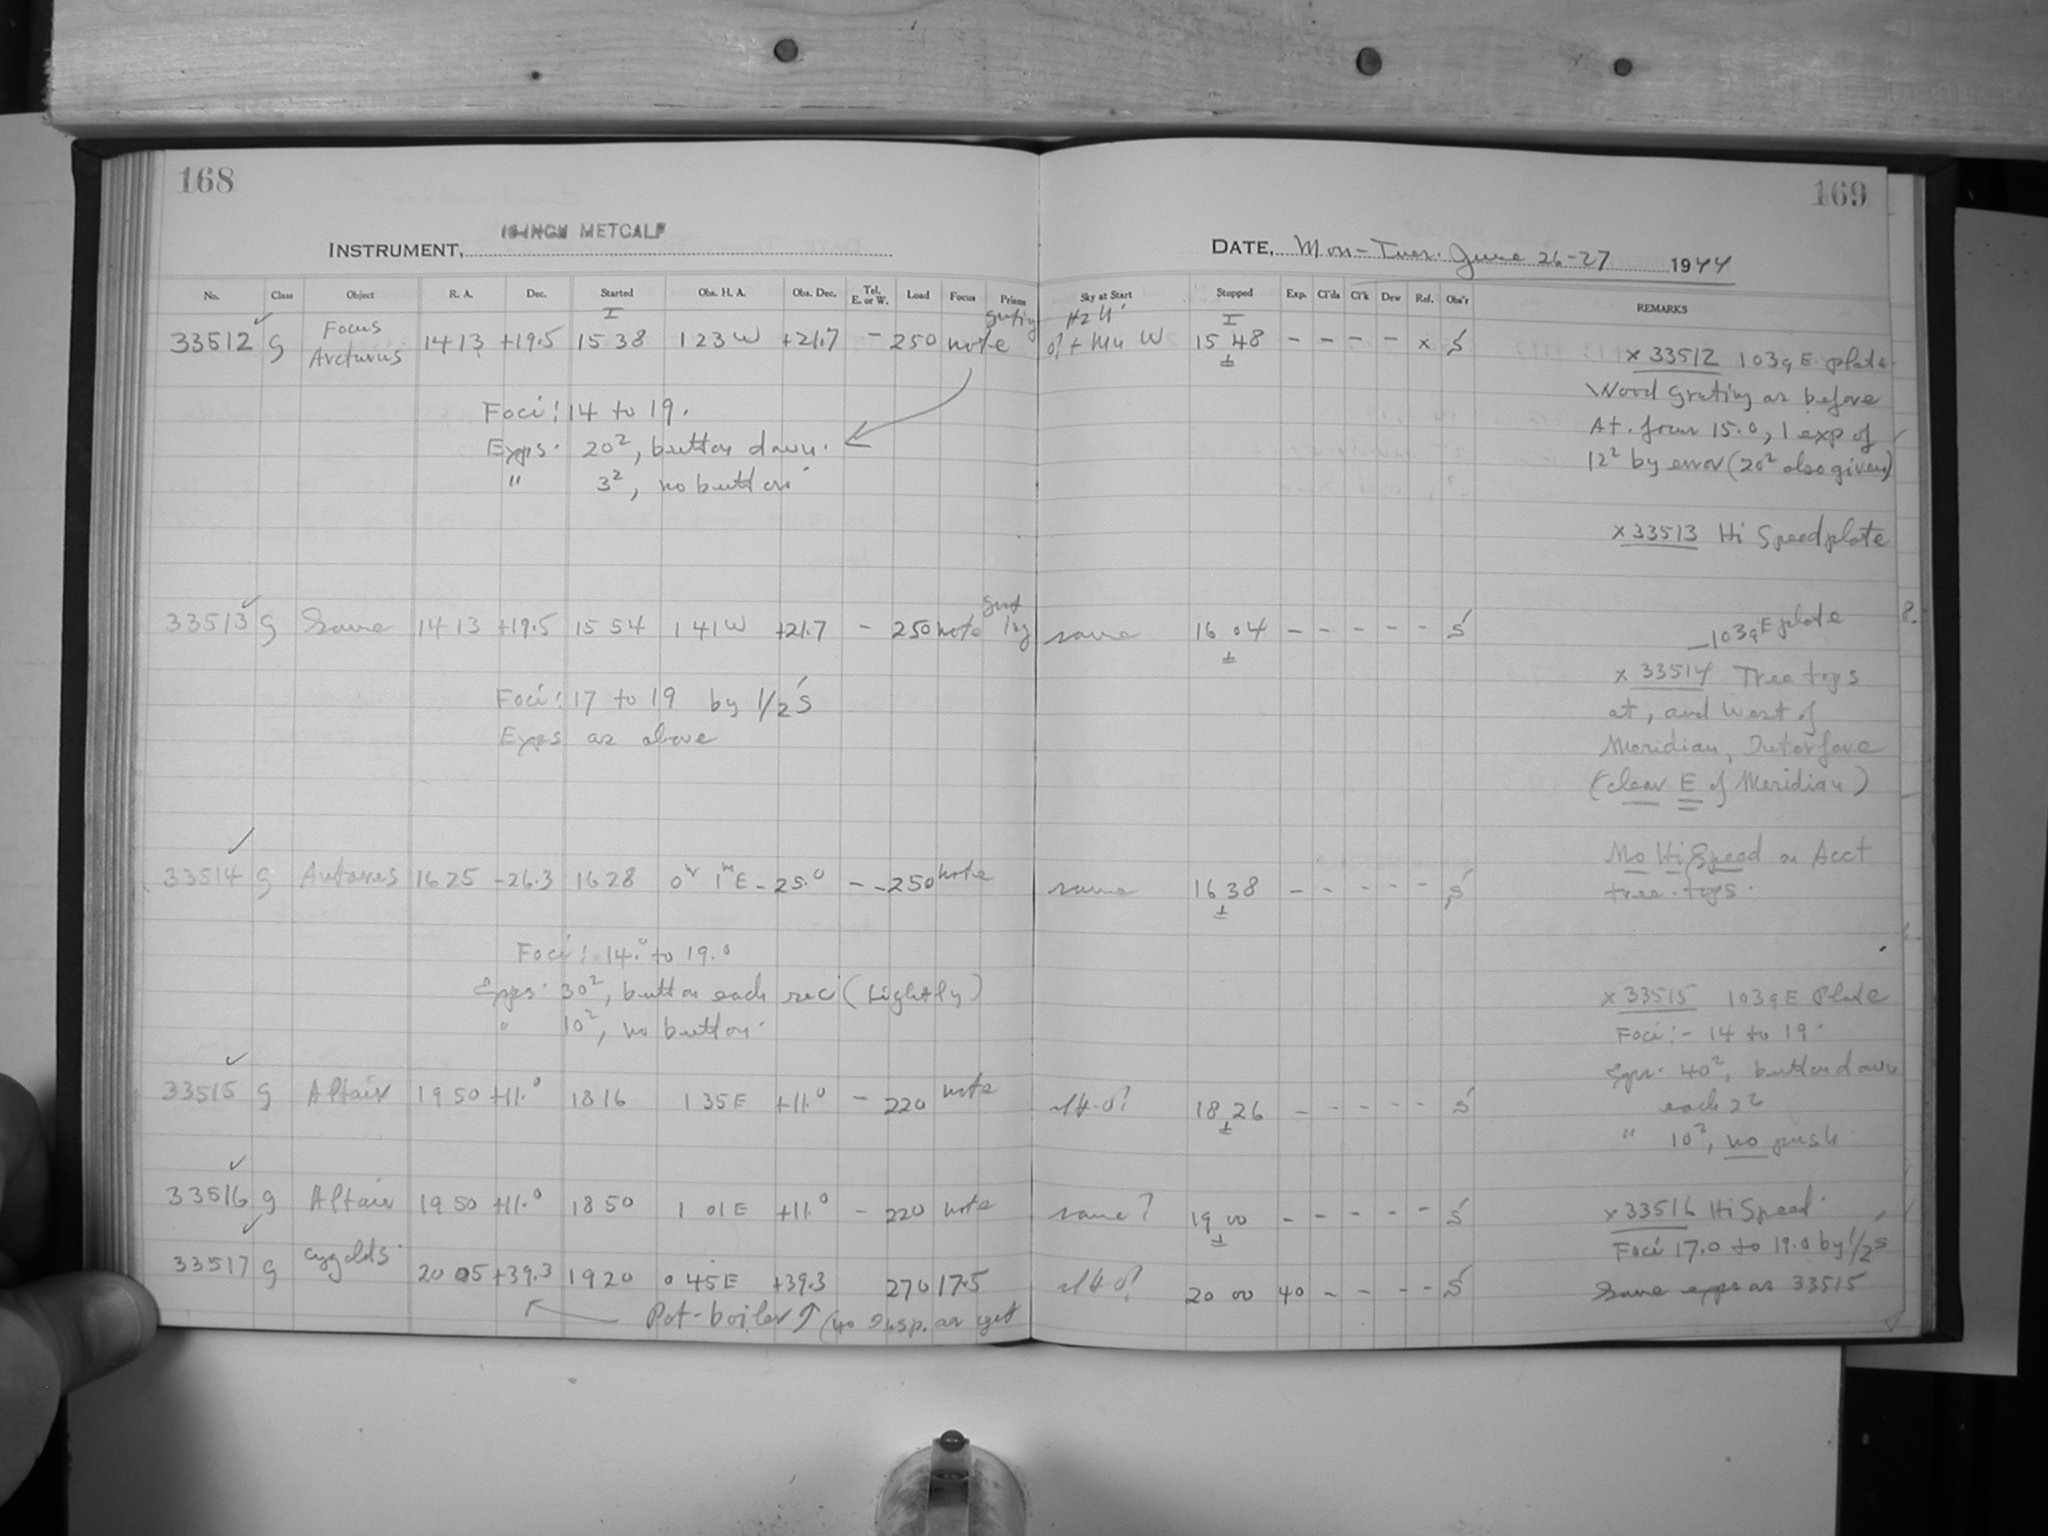 168
16-INCH METCALF
INSTRUMENT,
No. Class Object R. A. Dec. Started Obs. H. A. Obs. Dec. Tel. E. or W. Load Focus Prisms
33512 g Focus Arcturus 14 13 +19.5 15 38 1 23 W +21.7 - 250 note grating
Foci: 14 to 19.
Exps. 20², button down.
" 3², no button
33513 g Same 14 13 +19.5 15 54 1 41 W +21.7 - 250 note grating
Foci: 17 to 19 by 1/2's
Exps as above
33514 g Antares 16 25 -26.3 16 28 0ʰ 1ᵐ E -25.0 - 250 note
Foci: 14.0 to 19.0
Exps. 30², button each sec (Lightly)
" 10², no button.
33515 g Altair 19 50 +11.0 18 16 1 35 E +11.0 - 220 note
33516 g Altair 19 50 +11.0 18 50 1 01 E +11.0 - 220 note
33517 g 20 05 +39.3 19 20 0 45 E +39.3 270 17.5
Pot-boiler (no insp. as yet
169
DATE, Mon-Tues. June 26-27 1944
Sky at Start Stopped Exp. Cl'ds Cl'k Dew Ref. Obs'r REMARKS
W 15 48 ± - - - - x S
x 33512 103a E plate
Wood grating as before
At focus 15.0, 1 exp of
12² by error (20² also given)
x 33513 Hi Speed plate
same 16 04 ± - - - - - S
103a E plate
x 33514 Tree tops
at, and West of
Meridian, Interfere
(clear E of Meridian)
No Hi Speed on Acct
tree-tops.
same 16 38 ± - - - - - S
x 33515 103a E Plate
Foci:- 14 to 19.
Exps. 40², button down
each 2²
" 10², no push
18 26 ± - - - - - S
same? 19 00 ± - - - - - S
x 33516 Hi Speed.
Foci 17.0 to 19.0 by 1/2's
Same exps as 33515
20 00 40 - - - - S